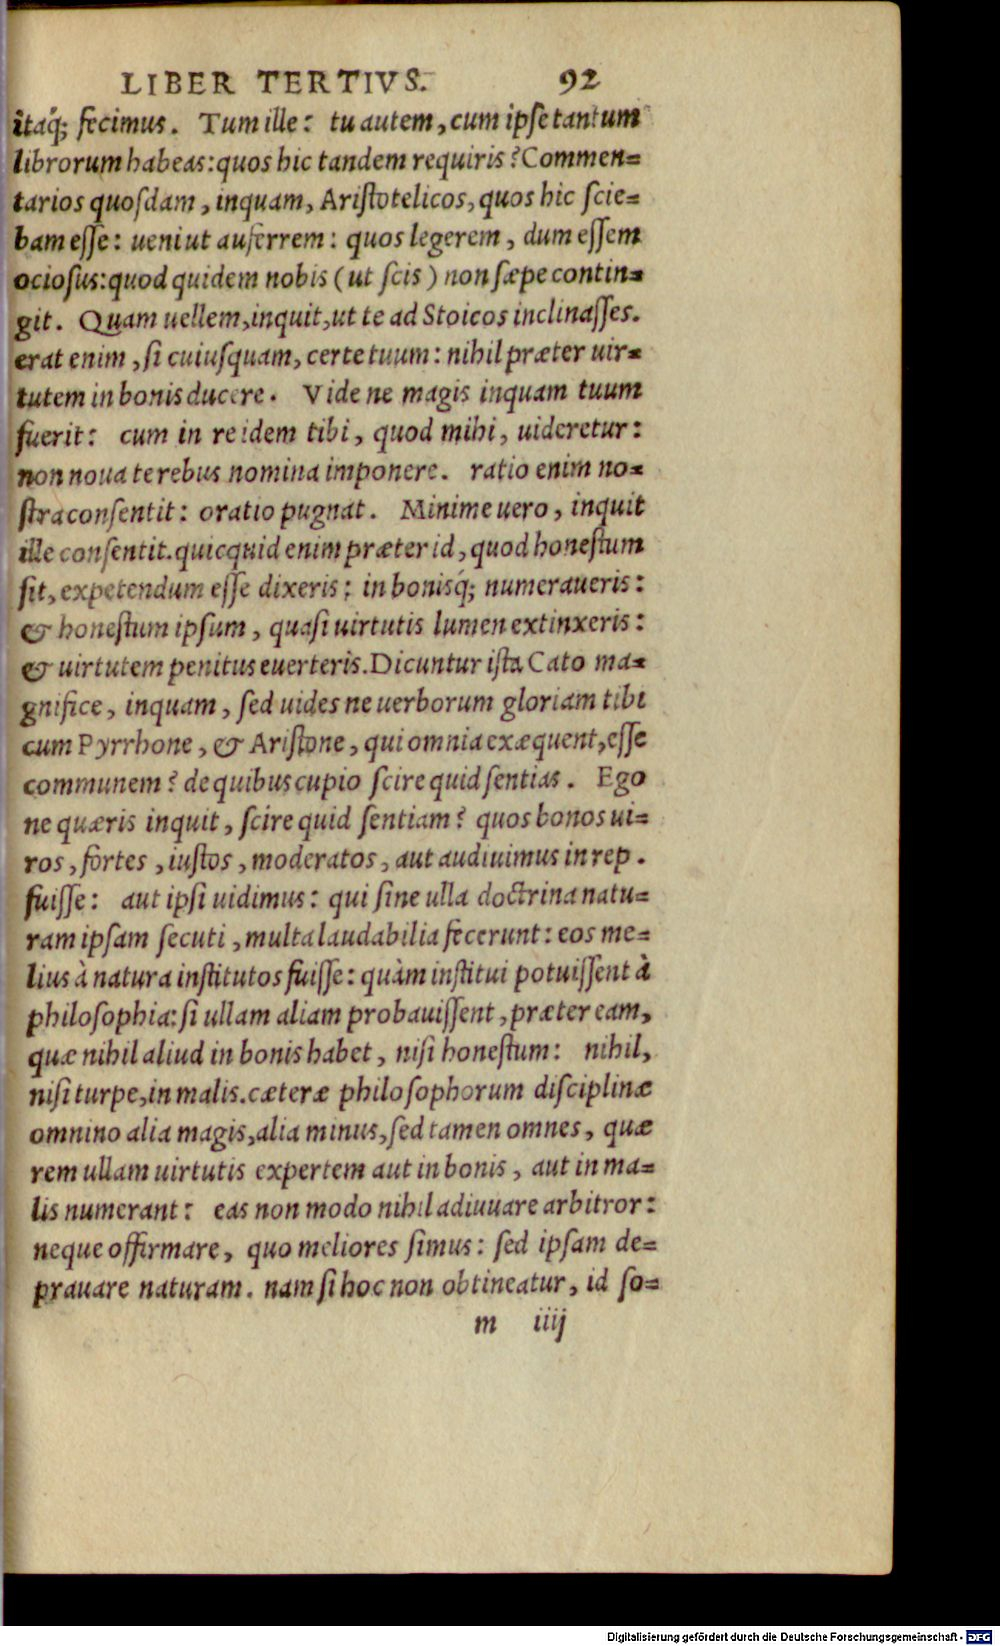 LIBER TERTIVS. 92
itaq́; fecimus. Tum ille: tu autem, cum ipse tantum
librorum habeas: quos hic tandem requiris? Commen=
tarios quosdam, inquam, Aristotelicos, quos hic scie=
bam esse: ueni ut auferrem: quos legerem, dum essem
ociosus: quod quidem nobis (ut scis) non sæpe contin=
git. Quam uellem, inquit, ut te ad Stoicos inclinasses.
erat enim, si cuiusquam, certe tuum: nihil præter uir=
tutem in bonis ducere. Vide ne magis inquam tuum
fuerit: cum in re idem tibi, quod mihi, uideretur:
non noua te rebus nomina imponere. ratio enim no=
stra consentit: oratio pugnat. Minime uero, inquit
ille consentit. quicquid enim præter id, quod honestum
sit, expetendum esse dixeris: in bonisq́; numeraueris:
& honestum ipsum, quasi uirtutis lumen extinxeris:
& uirtutem penitus euerteris. Dicuntur ista Cato ma=
gnifice, inquam, sed uides ne uerborum gloriam tibi
cum Pyrrhone, & Aristone, qui omnia exæquent, esse
communem? de quibus cupio scire quid sentias. Ego
ne quæris inquit, scire quid sentiam? quos bonos ui=
ros, fortes, iustos, moderatos, aut audiuimus in rep.
fuisse: aut ipsi uidimus: qui sine ulla doctrina natu=
ram ipsam secuti, multa laudabilia fecerunt: eos me=
lius à natura institutos fuisse: quàm institui potuissent à
philosophia: si ullam aliam probauissent, præter eam,
quæ nihil aliud in bonis habet, nisi honestum: nihil,
nisi turpe, in malis. cæteræ philosophorum disciplinæ
omnino alia magis, alia minus, sed tamen omnes, quæ
rem ullam uirtutis expertem aut in bonis, aut in ma=
lis numerant: eas non modo nihil adiuuare arbitror:
neque offirmare, quo meliores simus: sed ipsam de=
prauare naturam. nam si hoc non obtineatur, id so=
m iiij
Digitalisierung gefördert durch die Deutsche Forschungsgemeinschaft - DFG